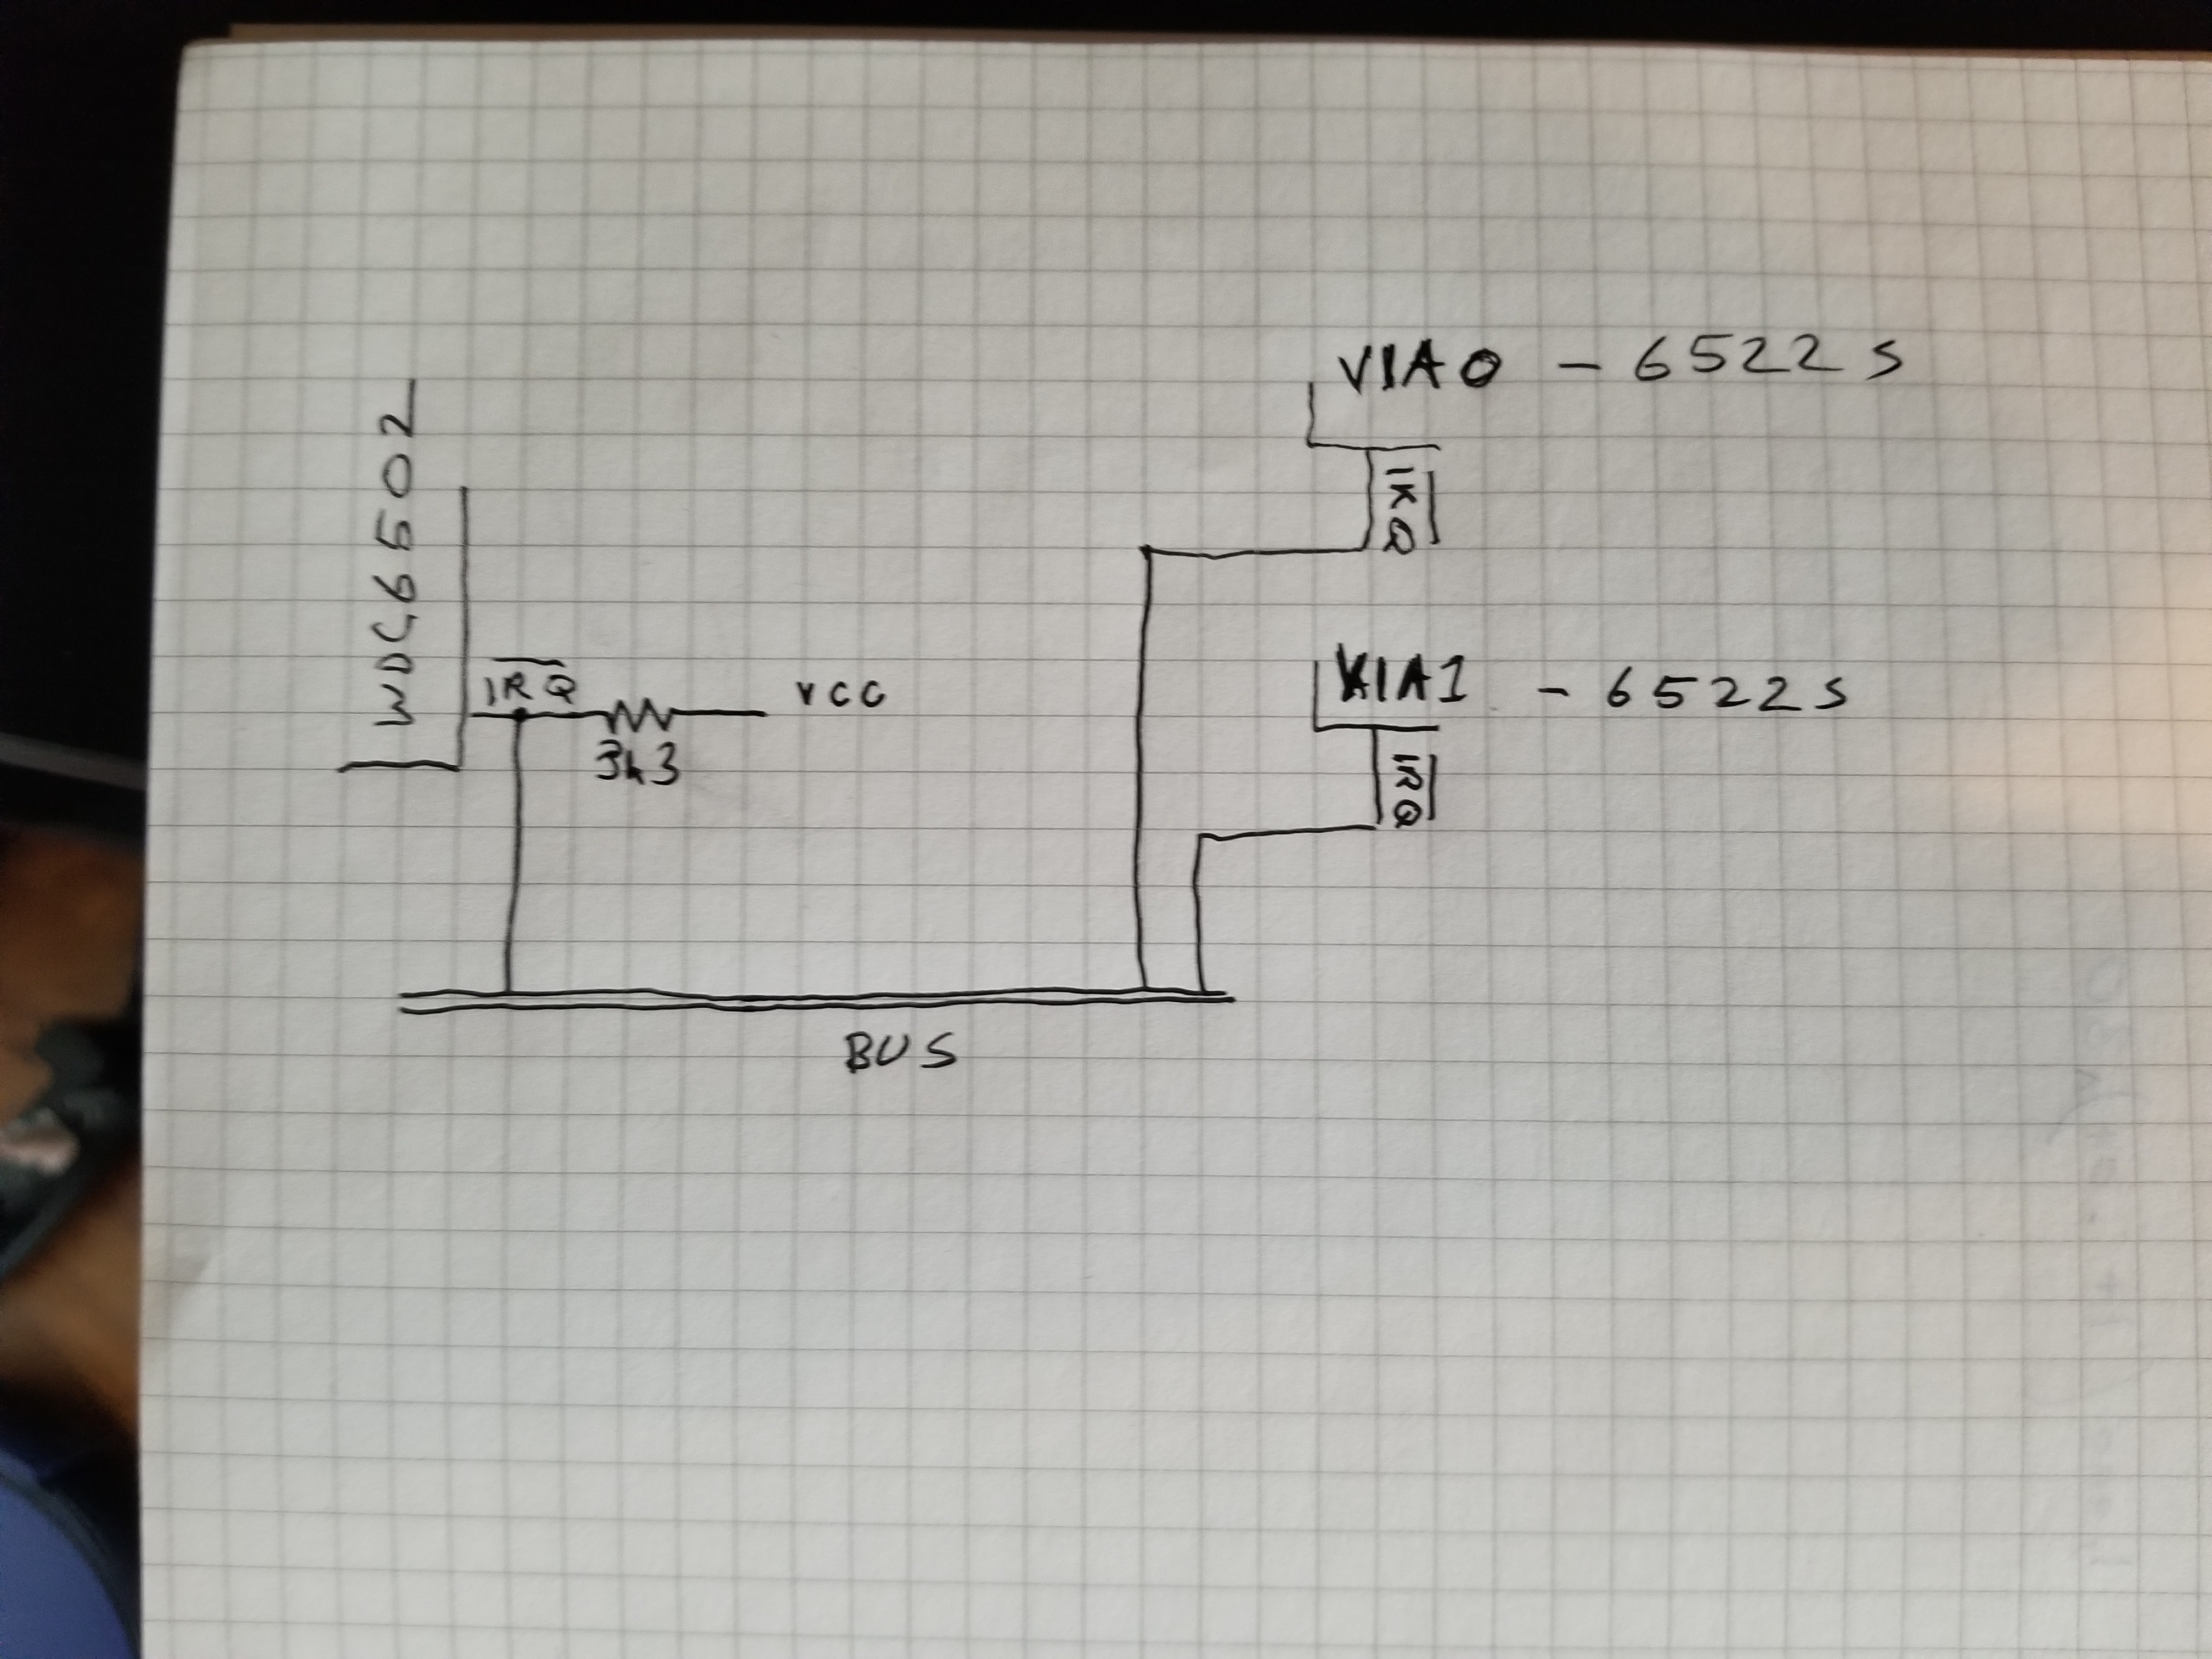 WDC6502
IRQ
3k3
VCC
VIA0 - 6522S
IRQ
VIA1 - 6522S
IRQ
BUS